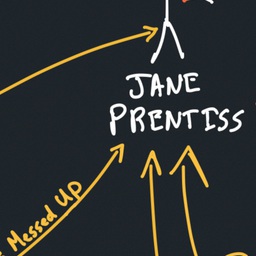 JANE
PRENTISS
Messed Up